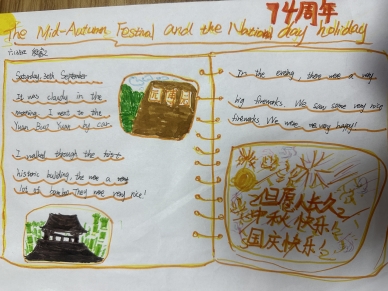 74周年
The Mid-Autumn Festival and the National day holiday
Saturday, 30th September
It was cloudy in the
morning. I went to the
Yuan by car.
I walked through the
historic building,
They were very nice!
In the evening, there were a very
big fireworks. We saw some very nice
fireworks. We were very happy!
但愿人长久
中秋快乐!
国庆快乐!